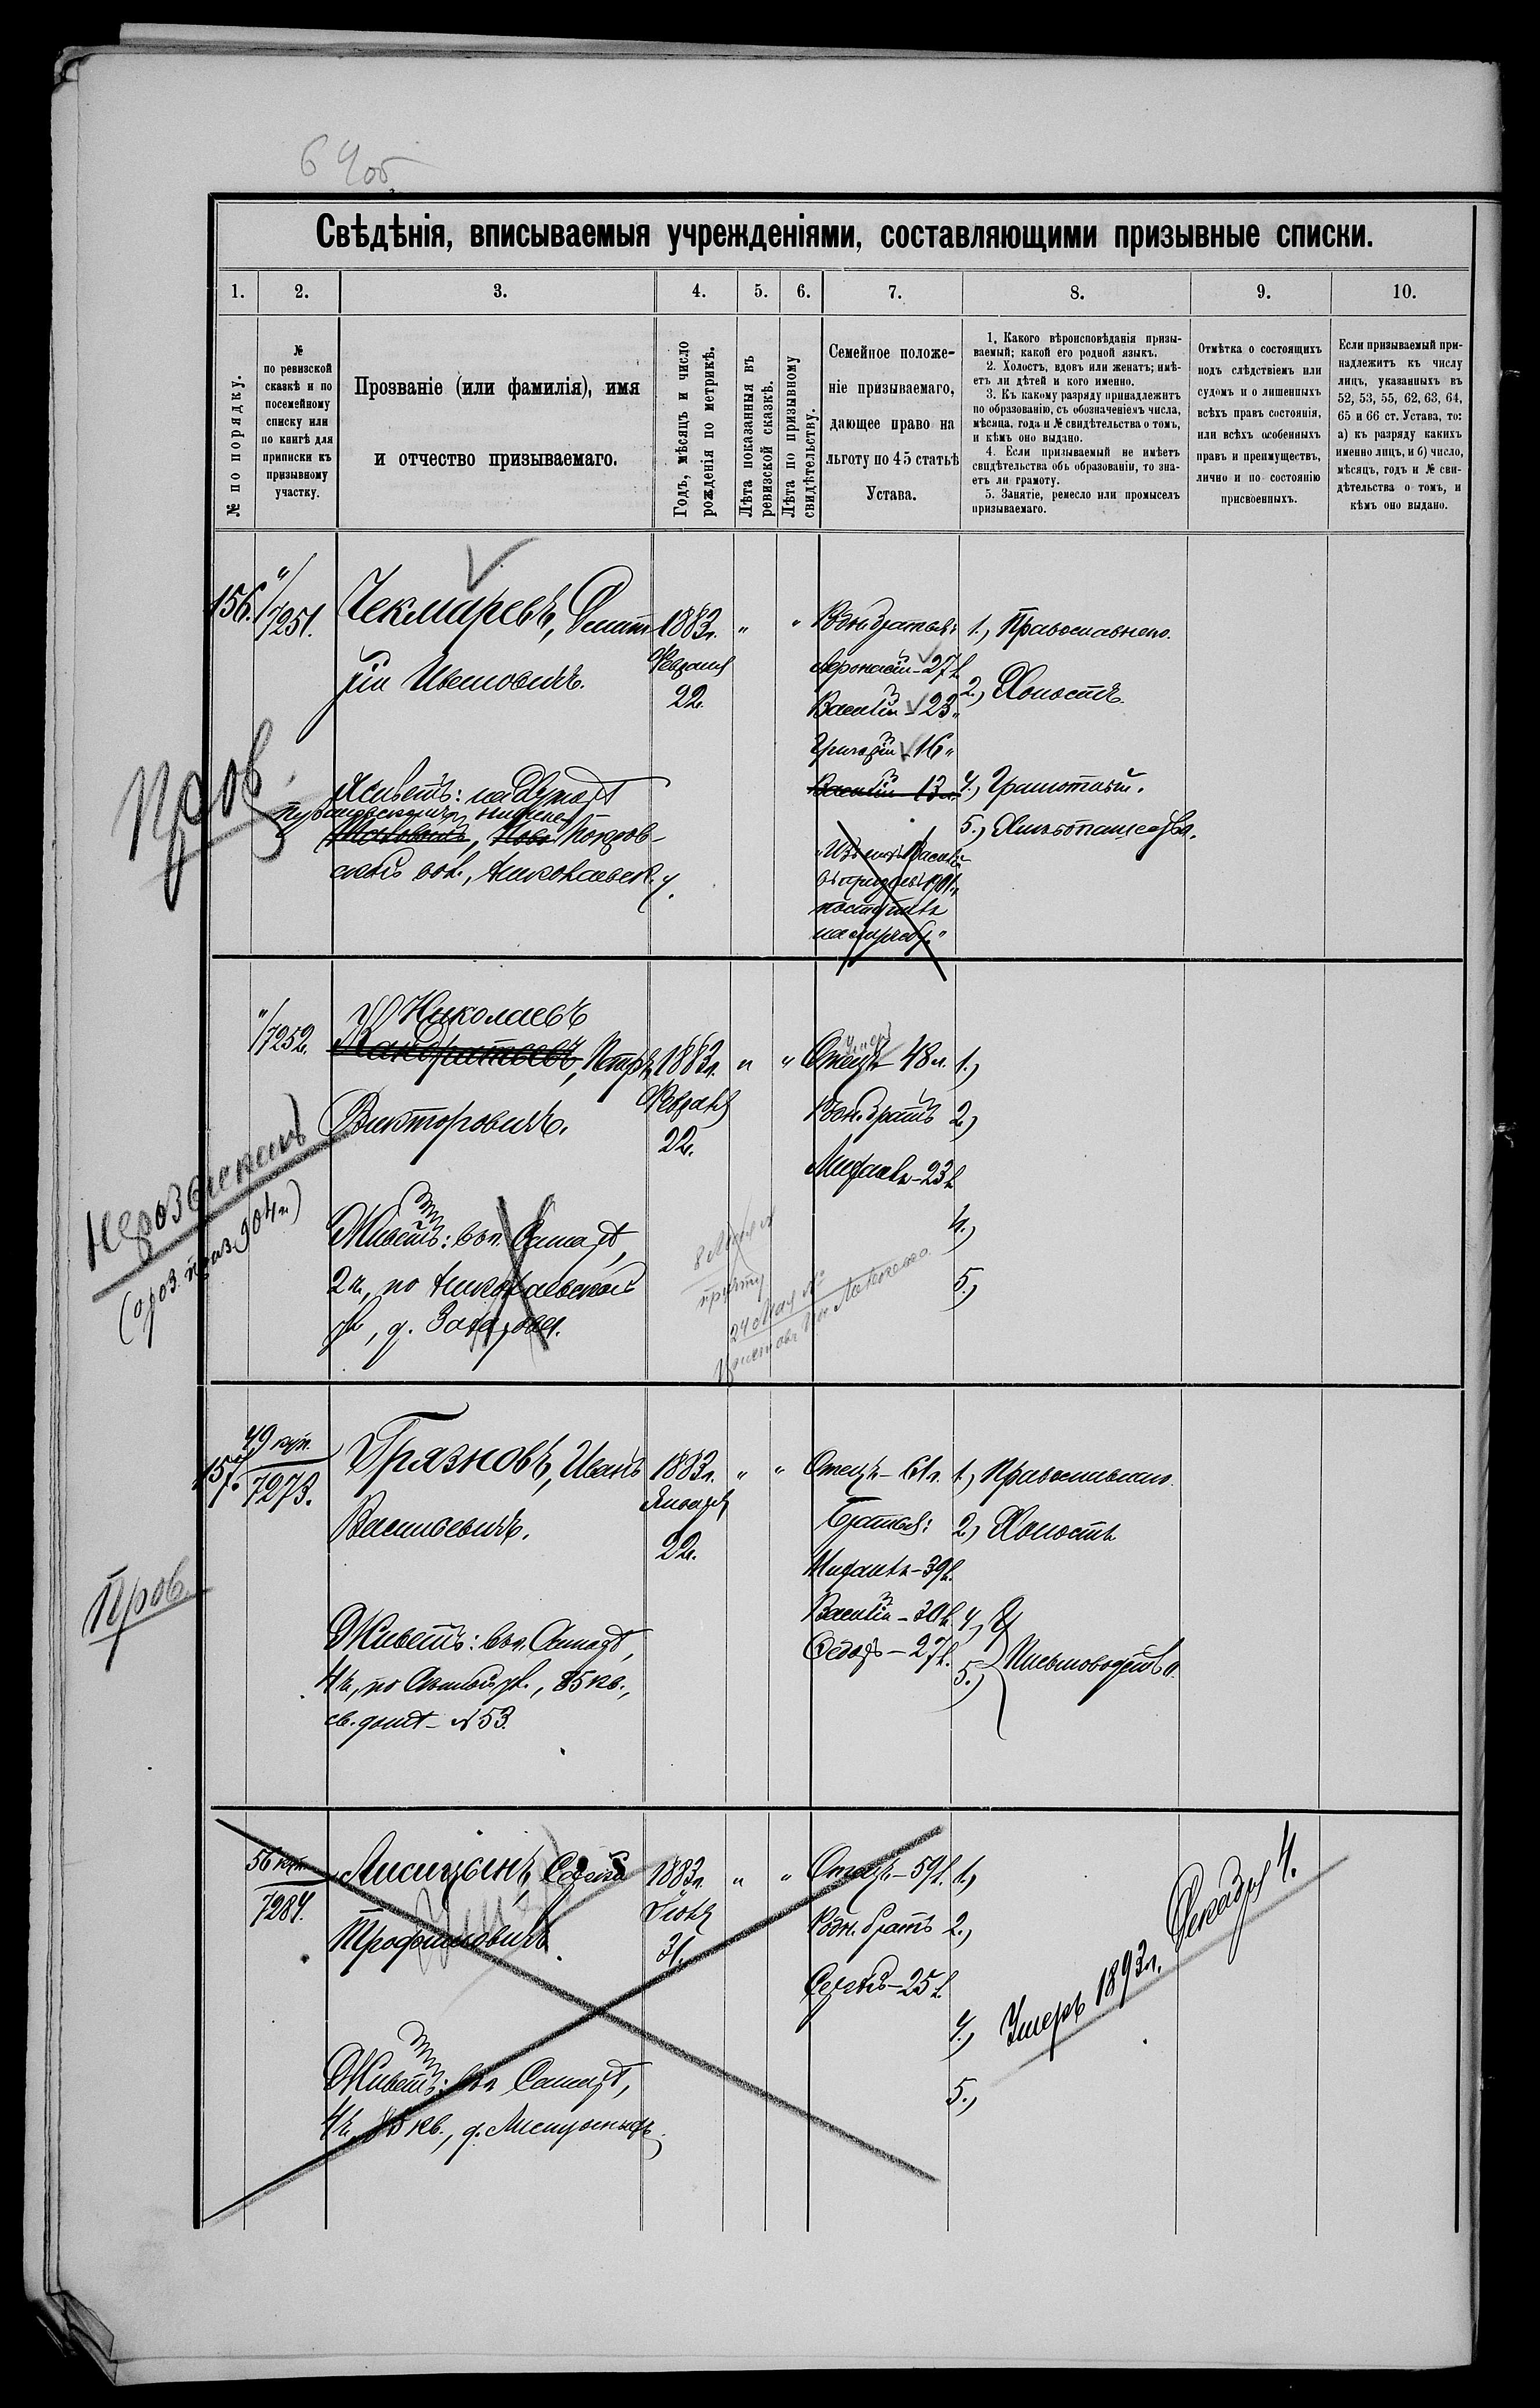 64 об.
Свѣдѣнія, вписываемыя учрежденіями, составляющими призывные списки.
1. 2. 3. 4. 5. 6. 7. 8. 9. 10.
№ по порядку.
№
по ревизской
сказкѣ и по
посемейному
списку или
по книгѣ для
приписки къ
призывному
участку.
Прозваніе (или фамилія), имя
и отчество призываемаго.
Годъ, мѣсяцъ и число
рожденія по метрикѣ.
Лѣта показанныя въ
ревизской сказкѣ.
Лѣта по призывному
свидѣтельству.
Семейное положе-
ніе призываемаго,
дающее право на
льготу по 45 статьѣ
Устава.
1. Какого вѣроисповѣданія призы-
ваемый; какой его родной языкъ.
2. Холостъ, вдовъ или женатъ; имѣ-
етъ ли дѣтей и кого именно.
3. Къ какому разряду принадлежитъ
по образованію, съ обозначеніемъ числа,
мѣсяца, года и № свидѣтельства о томъ,
и кѣмъ оно выдано.
4. Если призываемый не имѣетъ
свидѣтельства объ образованіи, то зна-
етъ ли грамоту.
5. Занятіе, ремесло или промыселъ
призываемаго.
Отмѣтка о состоящихъ
подъ слѣдствіемъ или
судомъ и о лишенныхъ
всѣхъ правъ состоянія,
или всѣхъ особенныхъ
правъ и преимуществъ,
лично и по состоянію
присвоенныхъ.
Если призываемый при-
надлежитъ къ числу
лицъ, указанныхъ въ
52, 53, 55, 62, 63, 64,
65 и 66 ст. Устава, то:
а) къ разряду какихъ
именно лицъ, и б) число,
мѣсяцъ, годъ и № сви-
дѣтельства о томъ, и
кѣмъ оно выдано.
Пров.
156.
"/7251.
Чекмаревъ, Дмит-
рій Ивановичъ.
Живетъ:
Покров-
ской вол., Николаевск. у.
1883г.
Февраля
22.
" "
Родн. братья:
Афонасій - 27 л.
Василій - 23 "
Григорій - 16 "
Василій 13 "
Василій
въ призывъ 1901 г.
поступилъ
на службу."
1., Православнаго.
2., Холостъ.
4., Грамотный.
5., Хлѣбопашество.
Неразысканъ
"/7252.
Николаевъ
Кандратьевъ, Петръ
Викторовичъ.
Живетъ: въ г. Самарѣ,
2 ч., по Николаевской
ул., д. Захарова.
1883г.
Февраля
22.
" "
умеръ
Отецъ - 48 л.
Родн. братъ
Михаилъ - 23 л.
1.,
2.,
4.,
5.,
24 Мая №
Пров.
157.
49 куп.
7273.
Грязновъ, Иванъ
Васильевичъ.
Живетъ: въ г. Самарѣ,
4 ч., по ул., 85 кв.,
св. домъ - № 53.
1883г.
Января
22.
" "
Отецъ - 61 л.
Братья:
Михаилъ - 39 л.
Василій - 30 л.
Ѳедоръ - 27 л.
1., Православнаго.
2., Холостъ
4., и
5., Письмоводство.
56 куп.
7284.
Лисицынъ,
Трофимовичъ.
Умеръ
Живетъ: въ г. Самарѣ,
4 ч., 85 кв., д. Лисицыныхъ.
1883г.
Іюля
31.
" "
Отецъ - 59 л.
Родн. братъ
Сергѣй - 25 л.
1.,
2.,
4.,
5.,
Умеръ 1893 г. Декабря 4.